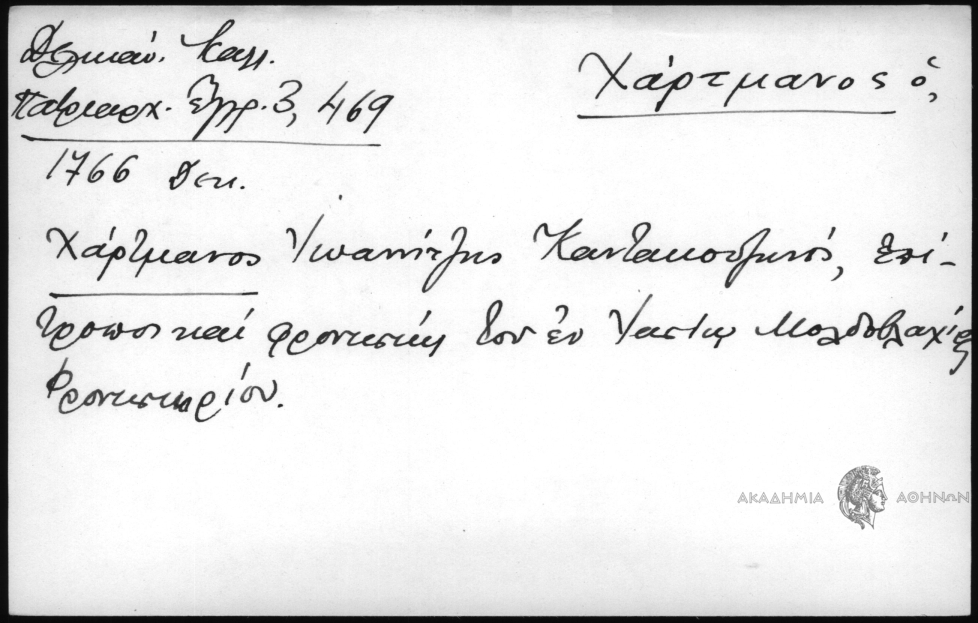 Δελικάν. Καλλ.
Πατριαρχ. Ἔγγρ. 3, 469
Χάρτμανος ὁ,
1766 Δεκ.
Χάρτμανος Ἰωαννίτζης Καντακουζηνός, ἐπί-
τροποι καί φροντισταί τοῦ ἐν Ἰασίῳ Μολδοβλαχίας
φροντιστηρίου.
ΑΚΑΔΗΜΙΑ ΑΘΗΝΩΝ